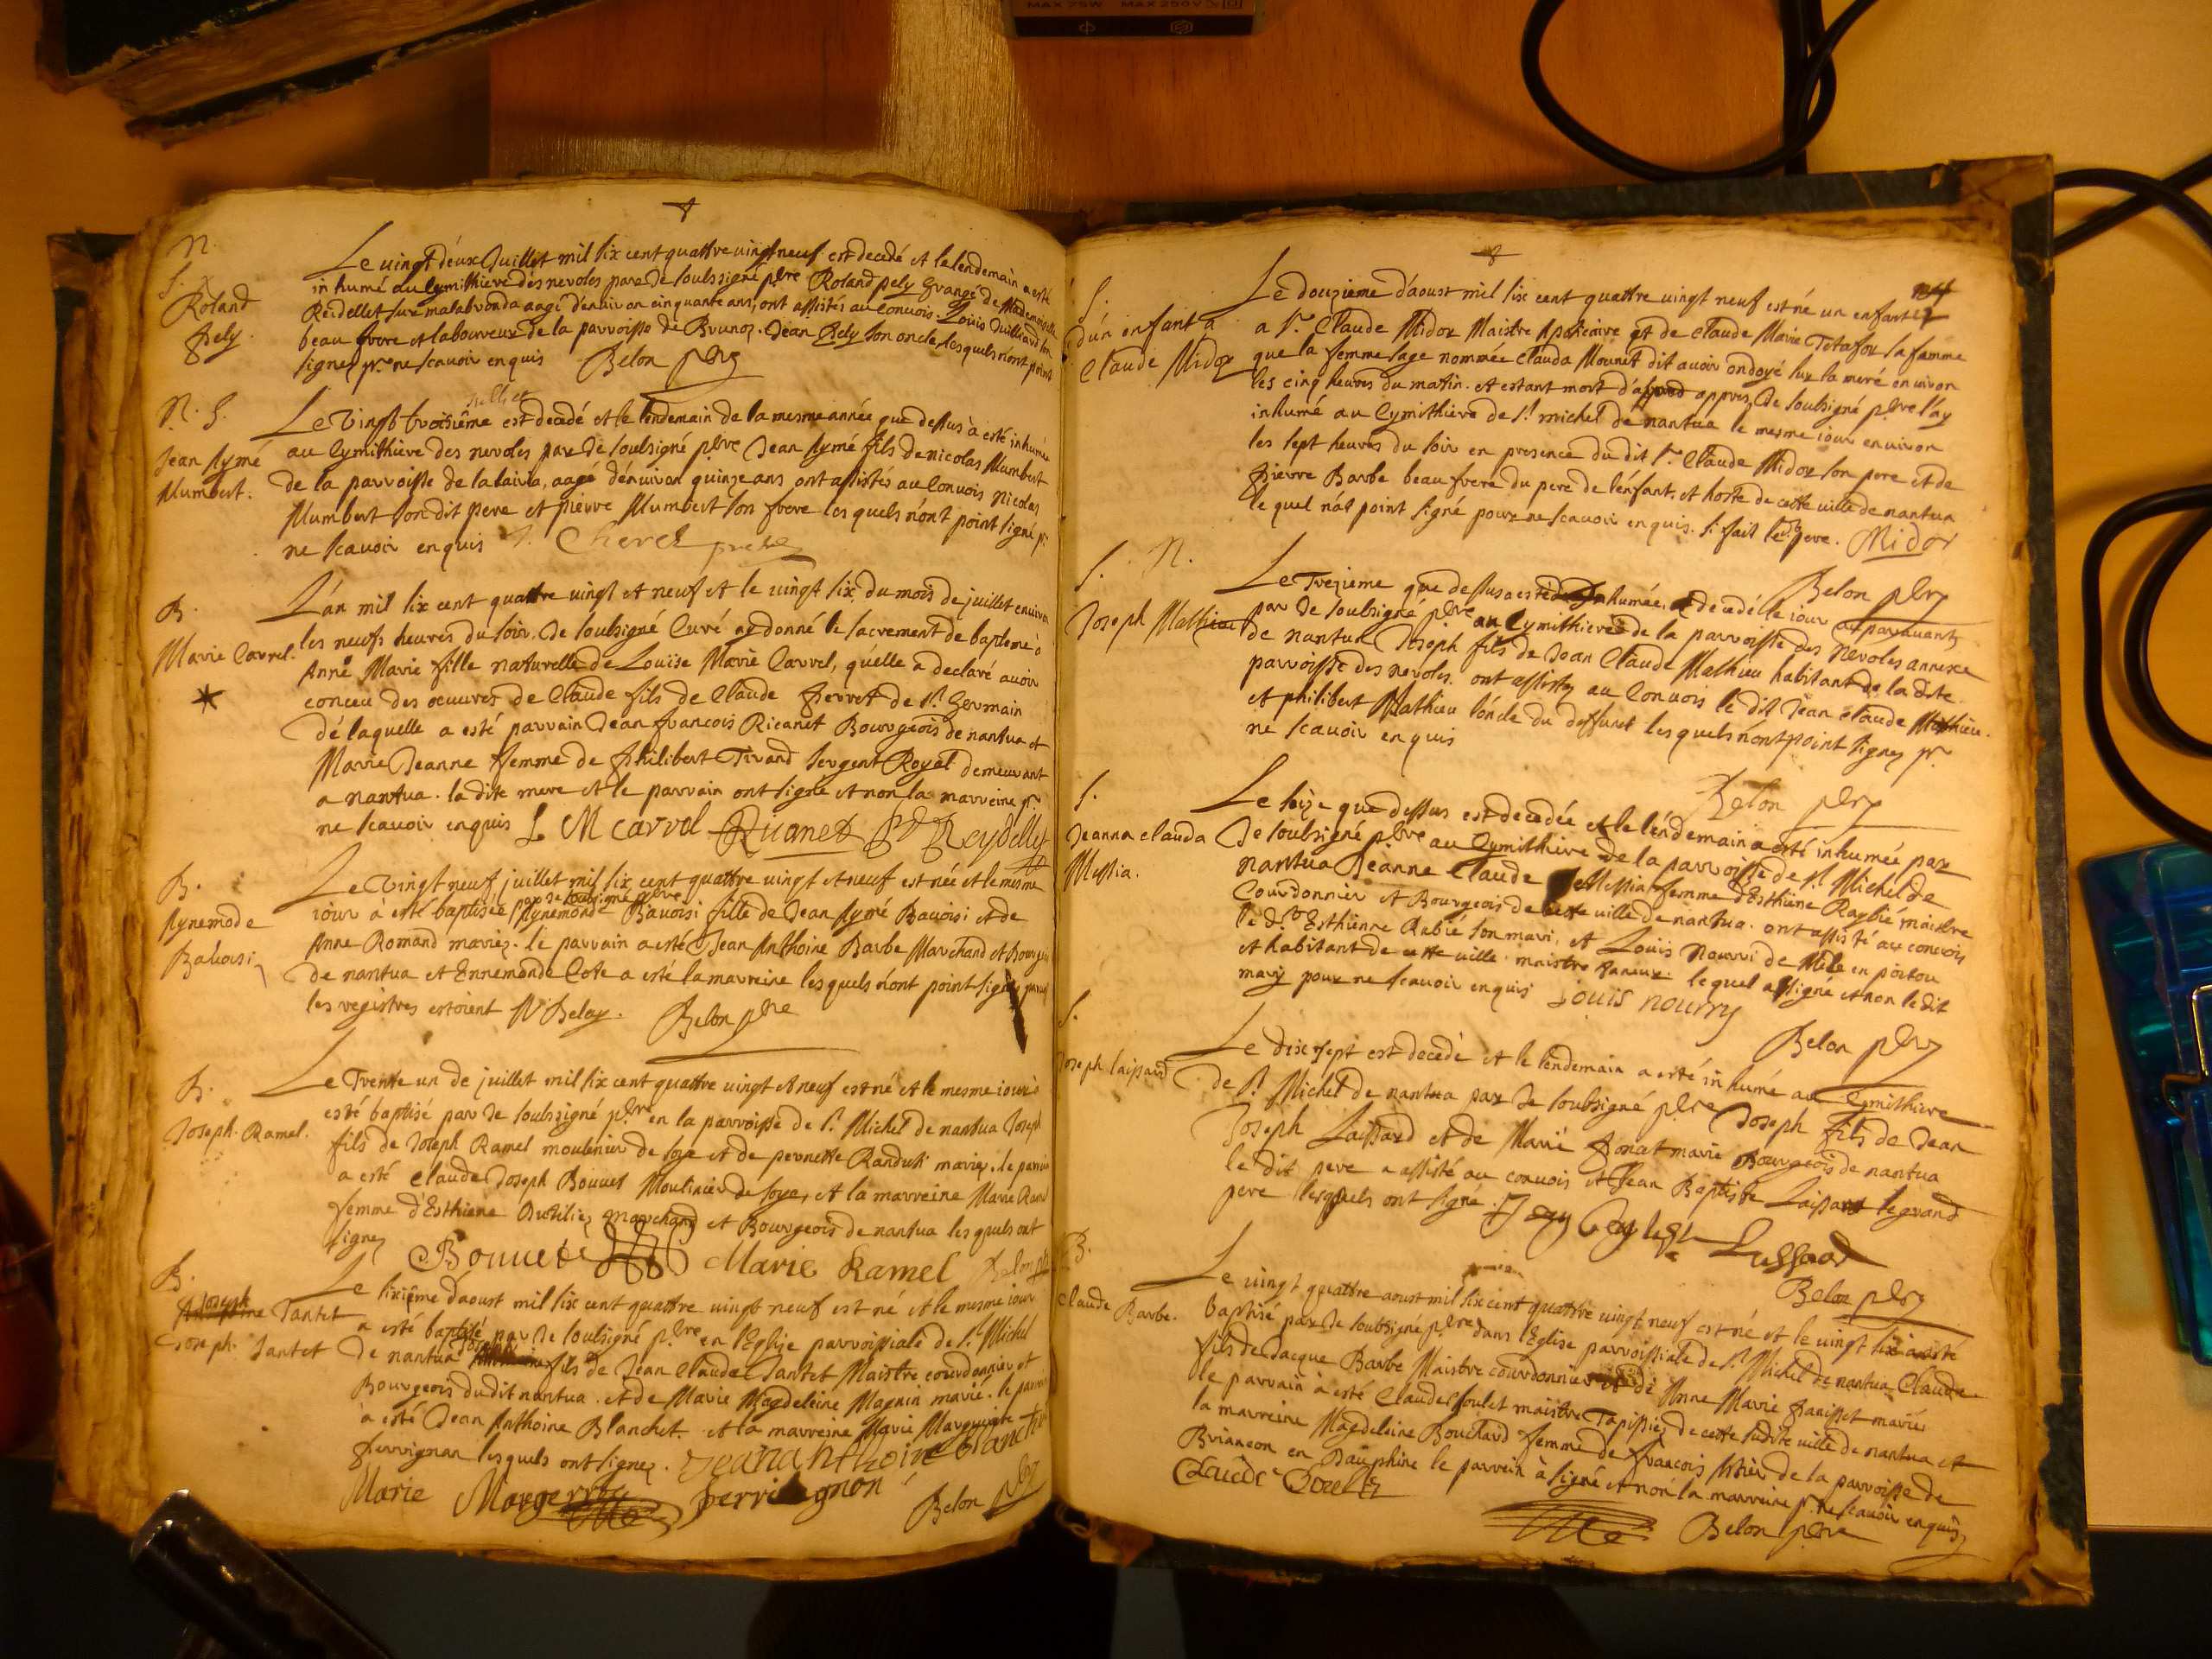 MAX 75W MAX 250V
N.
S.
Roland
Pely.
Le vingt deux Juillet mil six cent quattre vingt neuf est decedé et le lendemain a esté
inhumé au Cymithiere des nevoles par Je soubssigné pbre Roland pely Grangé de Mademoiselle
Reidellet sur malabronda aagé d'enuiron cinquante ans, ont assistés au Conuois. Louis Juilliard son
beau frere et laboureur de la parroisse de Brunoz. Jean Pely son oncle, les quels n'ont point
signez pr. ne scauoir enquis Belon pbrz
N. S.
Jean Aymé
Humbert.
Juillet
Le Vingt troisiême est decedé et le lendemain de la mesme année que dessus à esté inhumé
au Cymithiere des nevoles par Je soubsigné pbre Jean Aymé fils de nicolas Humbert
de la parroisse de lalaivia, aagé d'enuiron quinze ans ont assistés au Conuois nicolas
Humbert son dit pere et pierre Humbert son frere les quels n'ont point signé pr.
ne scauoir enquis Cherel
B.
Marie Carrel.
L'an mil six cent quattre vingt et neuf et le vingt six du mois de juillet enuiron
les neufs heures du soir. Je soubsigné Curé ay donné le sacrement de baptême à
Anne Marie fille naturelle de Louïse Marie Carrel, qu'elle a declaré auoir
conceu des oeuures de Claude fils de Claude Perret de St. Germain
de laquelle a esté parrain Jean francois Ricanet Bourgeois de nantua et
Marie Jeanne femme de Philibert Tirand sergent Royal demeurant
a nantua. la dite mere et le parrain ont signé et non la marreine pr.
ne scauoir enquis L M carrel Ricanet Reydellet
B.
Aynemode
Bauoisi
Le Vingt neuf juillet mil six cent quattre vingt et neuf est née et le mesme
par Je soubsigné pbre
iour à esté baptisée Aynemonde Bauoisi fille de Jean Aymé Bauoisi et de
Anne Romand mariez. le parrain a esté Jean Anthoine Barbe Marchand et Bourgeois
de nantua et Ennemonde Cote a esté la marreine les quels n'ont point signé
les registres estoient Belon pbre
B.
Joseph Ramel.
Le Trente un de juillet mil six cent quattre vingt et neuf est né et le mesme iour à
esté baptisé par Je soubssigné pbre en la parroisse de St. Michel de nantua Joseph
fils de Joseph Ramel moulinier de soye et de pernette Randuti mariez. le parrain
a esté Claude Joseph Bouuet Moulinier de soye, et la marreine Marie Ramel
femme d'Esthiene marchand et Bourgeois de nantua les quels ont
signez Bouuet Marie Ramel Belon
B.
Joseph
Tantet
Joseph Tantet
Le sixième d'aoust mil six cent quattre vingt neuf est né et le mesme iour
a esté baptisé par Je soubsigné pbre en l'Eglise parroissiale de St. Michel
Joseph
de nantua fils de Jean Claude Tantet Maistre courdonnier et
Bourgeois dudit nantua. et de Marie Magdeleine Magnin marié. le parrain
à esté Jean Anthoine Blanchet. et la marreine Marie Marguerite
Perrignon les quels ont signez. Jean anthoine Blanchet
Marie Margerite perrignon Belon pbrz
S.
d'un enfant a
Claude Midor
Le douzieme d'aoust mil six cent quattre vingt neuf est né un enfant
a Sr. Claude Midor Maistre Apoticaire et de Claude Marie Tetafor sa famme
que la femme sage nommée Clauda Mounet dit auoir ondoyé sur la mere enuiron
les cinq heures du matin. et estant mort d'abord appres, Je soubsigné pbre l'ay
inhumé au Cymithiere de St. michel de nantua le mesme iour enuiron
les sept heures du soir en presence du dit Sr. Claude Midor son pere et de
Pierre Barbe beau frere du pere de l'enfant, et hoste de cette ville de nantua
le quel n'at point signé pour ne scauoir enquis. si fait le dt pere. Midor
Belon pbrz
S. N.
Joseph Mathieu
Le Trezieme que dessus a esté inhumée, decedé le iour auparauant,
par Je soubsigné pbre au Cymithiere de la parroisse des Nevoles annexe
de nantua Joseph fils de Jean Claude Mathieu habitant de la dite
parroisse des nevoles. ont assistez au Conuois le dit Jean Claude Mathieu
et philibert Mathieu l'oncle du deffunct les quels n'ont point signez pr.
ne scauoir enquis
Belon pbrz
S.
Jeanna clauda
Messia.
Le seize que dessus est decedée et le lendemain a esté inhumée par
Je soubsigné pbre au Cymithiere de la parroisse de St. Michel de
nantua Jeanne Claude Messia femme d'Esthiene Raybié maistre
Courdonnier et Bourgeois de cette ville de nantua. ont assisté au conuois
le dt. Esthienne Rabié son mari, et Louis Nourri de Mele en poitou
et habitant de cette ville maistre taneur. lequel a signé et non le dit
mary pour ne scauoir enquis Louis nourry
Belon pbrz
S.
Joseph Laissard
Le dix sept est decedé et le lendemain a esté inhumé au Cymithiere
de St. Michel de nantua par Je soubsigné pbre Joseph fils de Jean
Joseph Laissard et de Marie Jonat marié Bourgeois de nantua
le dit pere a assisté au conuois et Jean Baptiste Laissard le grand
pere lesquels ont signé.
Belon pbrz
B.
Claude Barbe.
Le vingt quattre aoust mil six cent quattre vingt neuf est né et le vingt six a esté
baptisé par Je soubsigné pbre dans l'Eglise parroissiale de St. Michel de nantua Claude
fils de Jacque Barbe Maistre courdonnier et de Anne Marie Panisset mariés
le parrain à esté Claude Goulet maistre Tapissiez de cette sudite ville de nantua et
la marreine Magdeleine Bouchard femme de francois de la parroisse de
Briancon en Dauphine le parrein à signé et non la marreine pr. ne scauoir enquis
Belon pbre